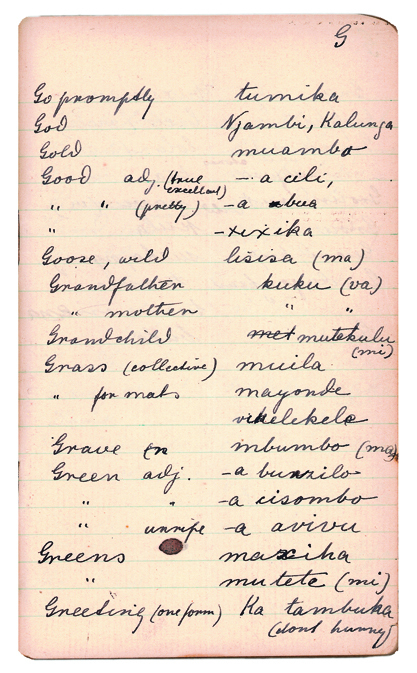 G
Go promptly tumika
God Njambi, Kalunga
Gold muambo
Good adj. (true excellent) - a cili,
" " (pretty) - a bua
" -xixika
Goose, wild lisisa (ma)
Grandfather kuku (va)
" mother " "
Grandchild mutekulu (mi)
Grass (collective) muila
" for mats mayonde
vihelekele
Grave mbumbo (ma)
Green adj. -a bunzilo
" " -a cisombo
" unripe -a avivu
Greens maxiha
" mutete (mi)
Greeting (one form) Ka tambuka
(dont hurry)